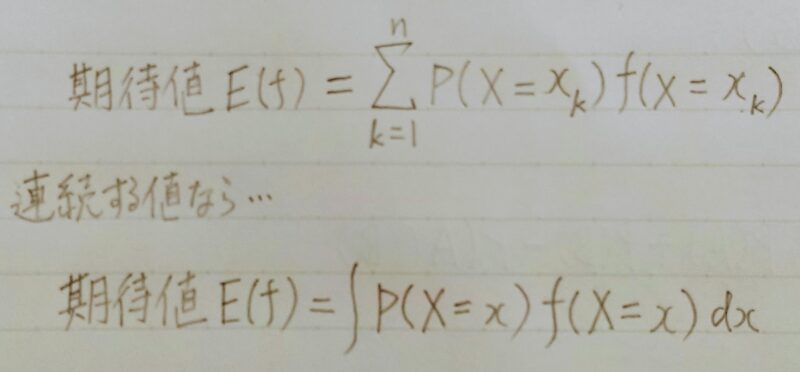 期待値 E(f) = \sum_{k=1}^{n} P(X = x_k) f(X = x_k)
連続する値なら…
期待値 E(f) = ∫ P(X = x) f(X = x) dx